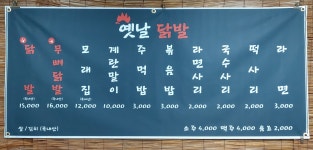 옛날 닭발
닭발 (국내산) 15,000
무뼈닭발 (국내산) 16,000
모래집 (국내산) 12,000
계란말이 10,000
주먹밥 3,000
볶음밥 3,000
라면사리 2,000
국수사리 2,000
떡사리 2,000
라면 3,000
쌀/김치 (국내산)
소주 4,000 맥주 4,000 음료 2,000